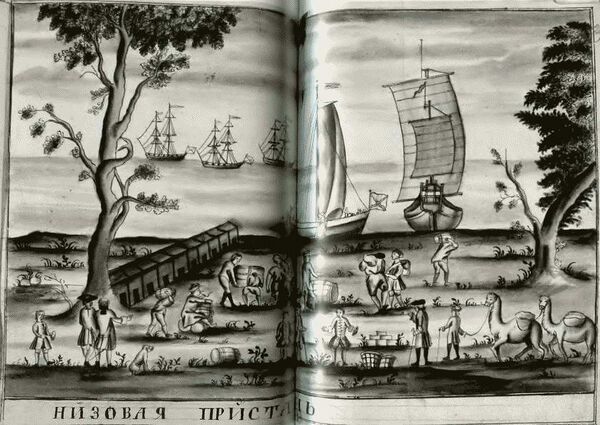 НИЗОВАЯ ПРЙСТАНЬ